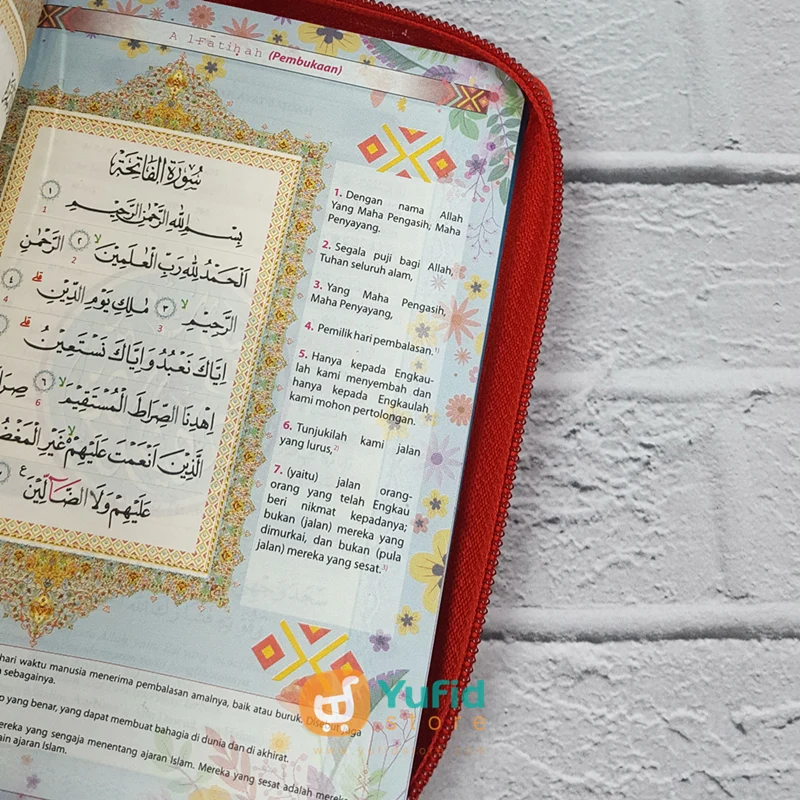 Al-Fātiḥah (Pembukaan)
سُوْرَةُ الْفَاتِحَةِ
بِسْمِ اللّٰهِ الرَّحْمٰنِ الرَّحِيْمِ ١
1
اَلْحَمْدُ لِلّٰهِ رَبِّ الْعٰلَمِيْنَۙ ٢ الرَّحْمٰنِ
2
الرَّحِيْمِۙ ٣ مٰلِكِ يَوْمِ الدِّيْنِۗ ٤
3 4
اِيَّاكَ نَعْبُدُ وَاِيَّاكَ نَسْتَعِيْنُۗ
اِهْدِنَا الصِّرَاطَ الْمُسْتَقِيْمَۙ ٦
6
الَّذِيْنَ اَنْعَمْتَ عَلَيْهِمْ ەۙ غَيْرِ
عَلَيْهِمْ وَلَا الضَّاۤلِّيْنَ ࣖ
1. Dengan nama Allah
Yang Maha Pengasih, Maha
Penyayang.
2. Segala puji bagi Allah,
Tuhan seluruh alam,
3. Yang Maha Pengasih,
Maha Penyayang,
4. Pemilik hari pembalasan.1)
5. Hanya kepada Engkau-
lah kami menyembah dan
hanya kepada Engkaulah
kami mohon pertolongan.
6. Tunjukilah kami jalan
yang lurus,2)
7. (yaitu) jalan orang-
orang yang telah Engkau
beri nikmat kepadanya;
bukan (jalan) mereka yang
dimurkai, dan bukan (pula
jalan) mereka yang sesat.3)
hari waktu manusia menerima pembalasan amalnya, baik atau buruk.
sebagainya.
yang benar, yang dapat membuat bahagia di dunia dan di akhirat.
mereka yang sengaja menentang ajaran Islam. Mereka yang sesat adalah
ajaran Islam.
Yufid
STORE